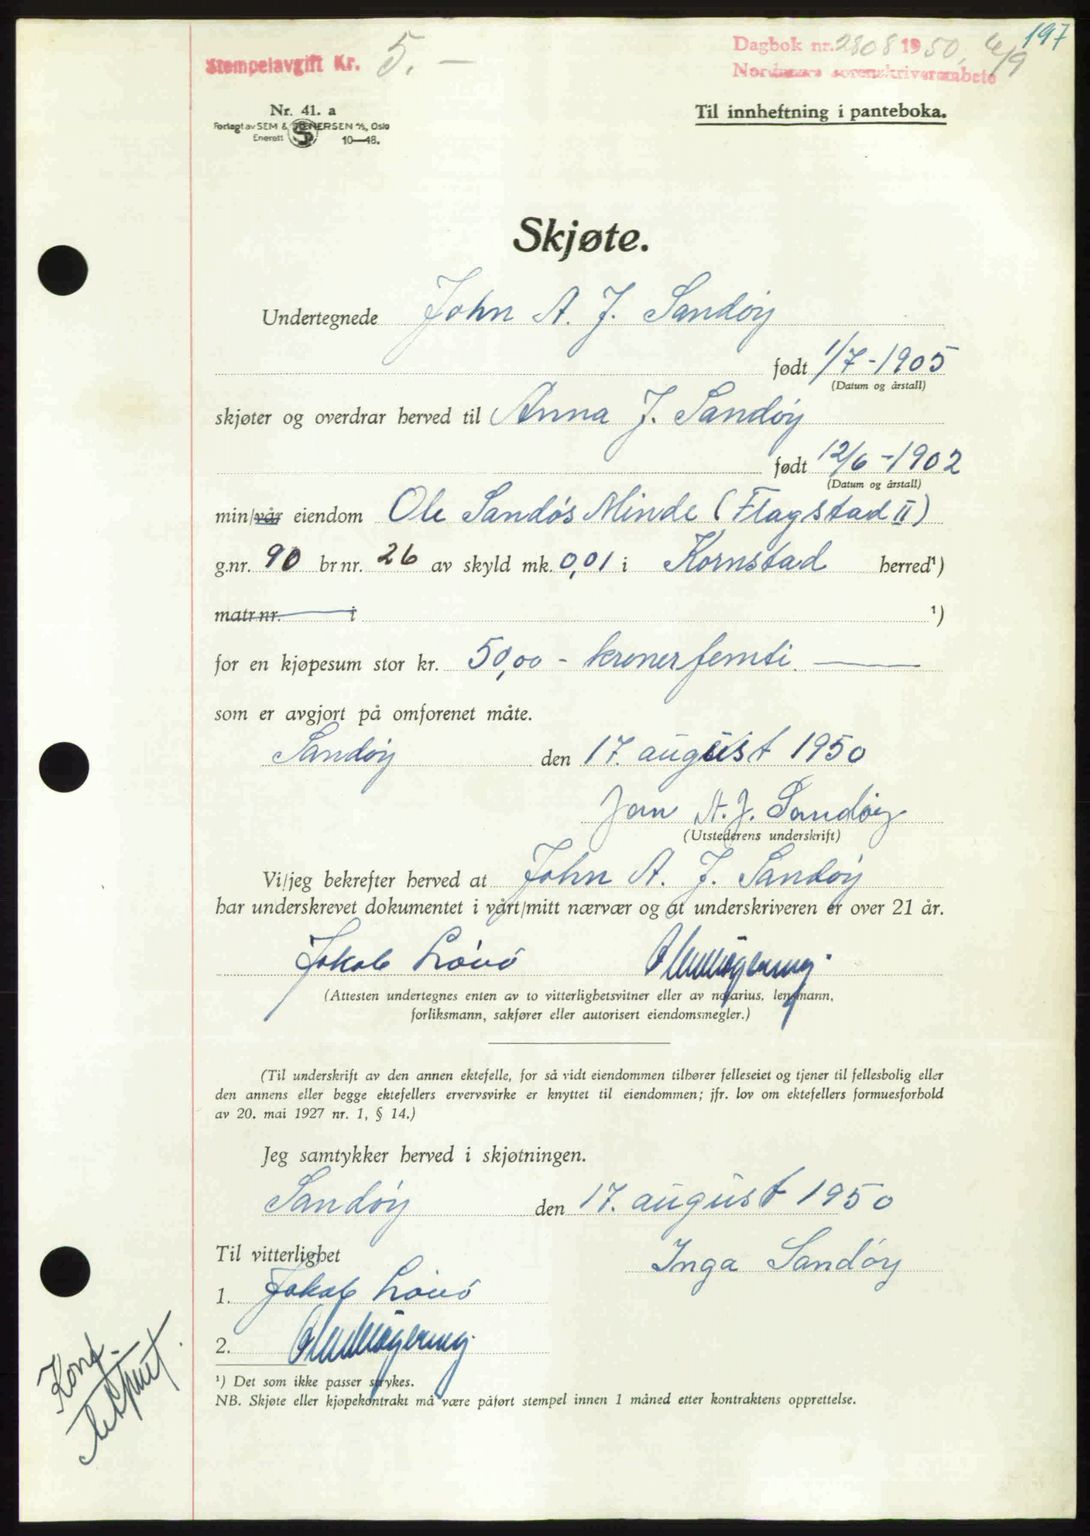 197
Stempelavgift Kr. 5.—
Dagbok nr. 2808 1950, 6/9
Nordmøre sorenskriverembete
Nr. 41. a
Forlagt av SEM & STENERSEN A/S, Oslo
Enerett 10—48.
Til innheftning i panteboka.
Skjøte.
Undertegnede John A. J. Sandøy
født 1/7-1905
(Datum og årstall)
skjøter og overdrar herved til Anna J. Sandøy
født 12/6-1902
(Datum og årstall)
min/vår eiendom Ole Sandøs Minde (Flagstad II)
g.nr. 90 br nr. 26 av skyld mk. 0,01 i Kornstad herred¹)
matr.nr. i ¹)
for en kjøpesum stor kr. 50,00 - kroner femti.
som er avgjort på omforenet måte.
Sandøy den 17. august 1950
Jon A. J. Sandøy
(Utstederens underskrift)
Vi/jeg bekrefter herved at John A. J. Sandøy
har underskrevet dokumentet i vårt/mitt nærvær og at underskriveren er over 21 år.
Jakob
(Attesten undertegnes enten av to vitterlighetsvitner eller av notarius, lensmann,
forliksmann, sakfører eller autorisert eiendomsmegler.)
(Til underskrift av den annen ektefelle, for så vidt eiendommen tilhører felleseiet og tjener til fellesbolig eller
den annens eller begge ektefellers ervervsvirke er knyttet til eiendommen; jfr. lov om ektefellers formuesforhold
av 20. mai 1927 nr. 1, § 14.)
Jeg samtykker herved i skjøtningen.
Sandøy den 17. august 1950
Til vitterlighet
Inga Sandøy
1. Jakob
2.
¹) Det som ikke passer strykes.
NB. Skjøte eller kjøpekontrakt må være påført stempel innen 1 måned etter kontraktens opprettelse.